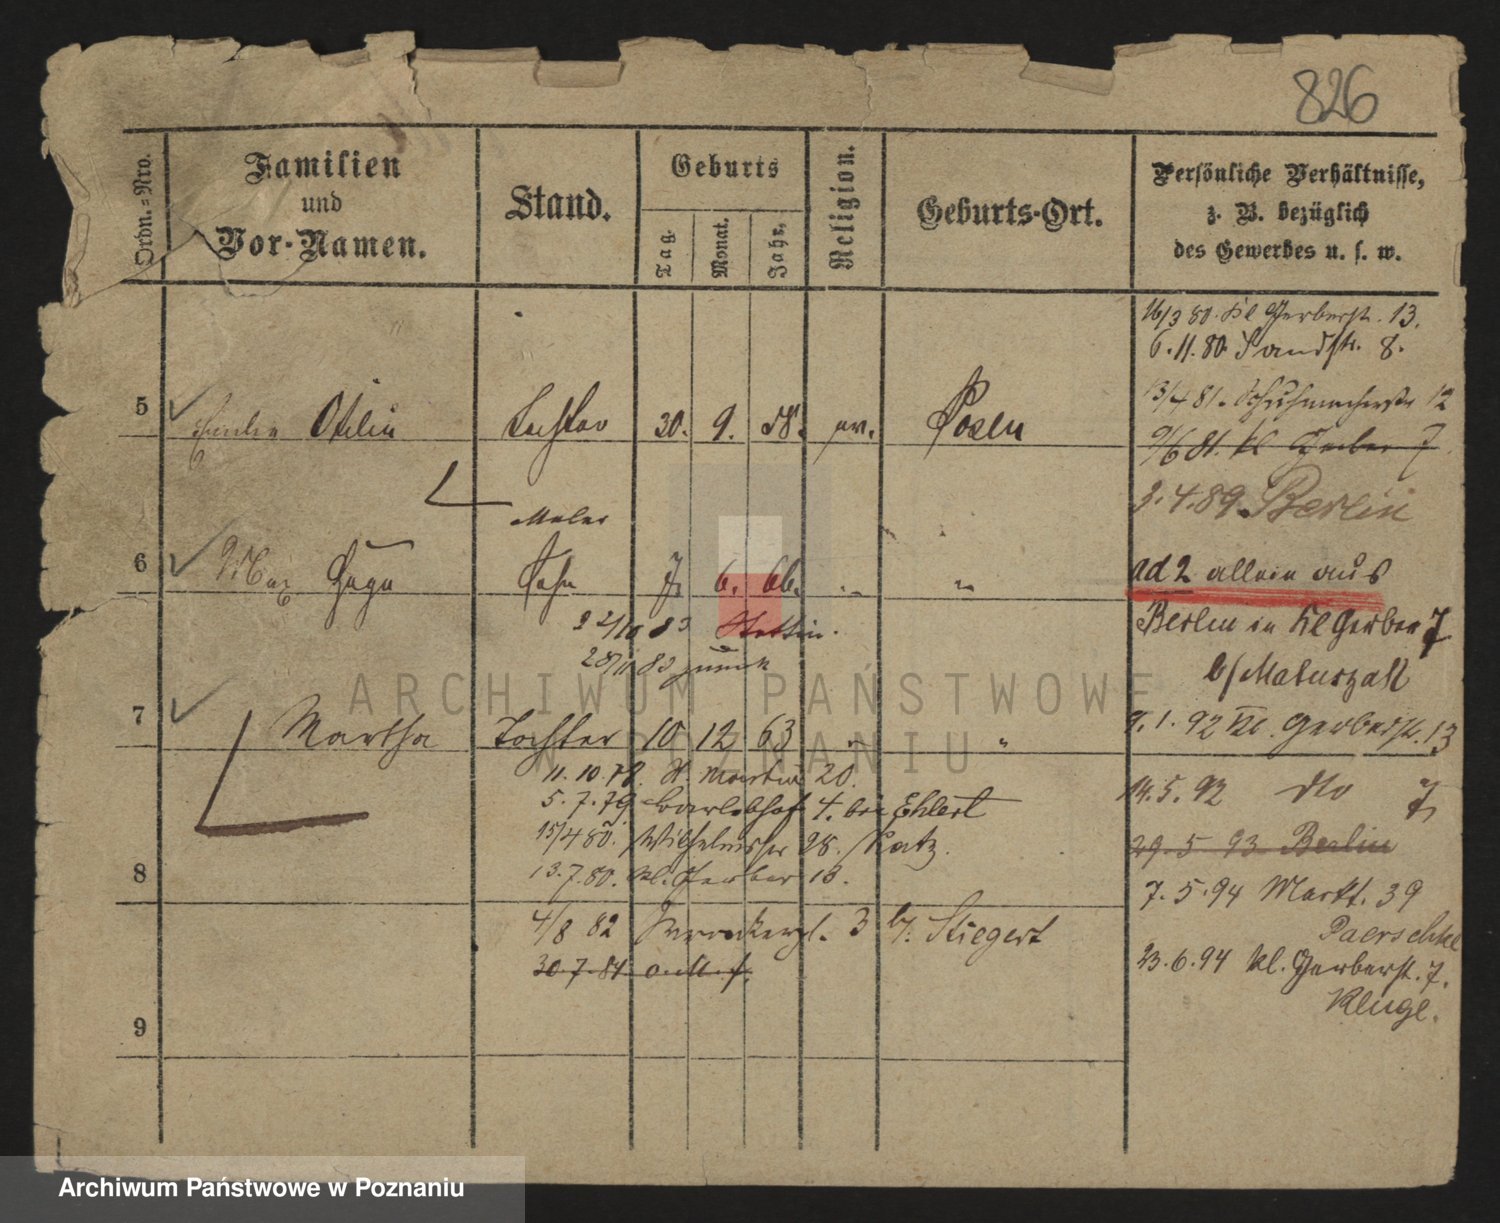 826
Ordn.-Nro.
Familien
und
Vor-Namen.
Stand.
Geburts
Tag.
Monat.
Jahr.
Religion.
Geburts-Ort.
Persönliche Verhältnisse,
z. B. bezüglich
des Gewerbes u. s. w.
16/3 80. Kl Gerberstr. 13.
6.11.80. Sandstr. 8.
5 Otilie Tochter 30. 9. 58. Posen
13/4 81. Schuhmacherstr 12
9/6 81. Kl Gerber 7
3.4.89. Berlin
Maler
6 Max Hugo Sohn 7. 6. 66. " "
ad 2 allein aus
22/10 83 Stettin.
Berlin in Kl Gerber 7
28/11 83 zurück
b/ Maturzall
7 Martha Tochter 10 12 63 " "
9.1.92 Kl. Gerberstr. 13
11.10.78. St. Martin 20.
14.5.92 dto 7
5.7.79 4. bei Ehlert
15/4 80. Wilhelmstr 28. Katz.
29.5 93 Berlin
8
13.7.80. Kl. Gerber 13.
7.5.94 Markt. 39
4/8 82 3 b/. Stiegert
Paerschke
30.7.84
23.6.94 Kl. Gerberstr. 7.
Kluge.
9
ARCHIWUM PAŃSTWOWE
W POZNANIU
Archiwum Państwowe w Poznaniu